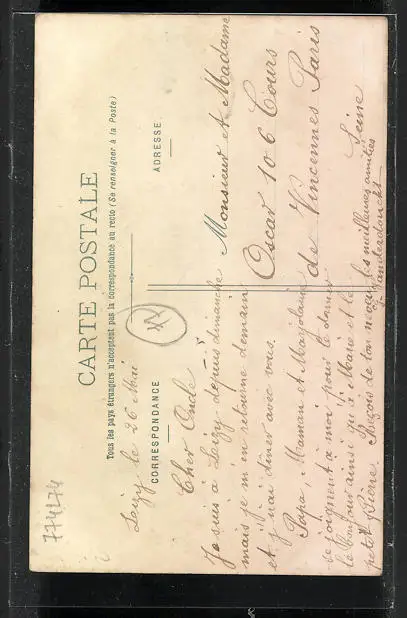 CARTE POSTALE
Tous les pays étrangers n'acceptent pas la correspondance au recto (Se renseigner à la Poste)
CORRESPONDANCE
ADRESSE
Leizy le 26 Mai
Cher Oncle
Je suis à Leizy depuis dimanche
mais je m'en retourne demain
et j'irai diner avec vous.
Papa Maman et Marjolaine
se joignent à moi pour le donner
le bonjour ainsi qu'à Marie et le
petit Pierre. Reçois de ton neveu les meilleures amitiés
Monsieur et Madame
Oscar 106 Cours
de Vincennes Paris
Seine
774174